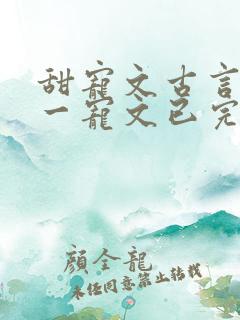 甜寵文古言
一寵文已完
顏全龍
未任同意禁止转载